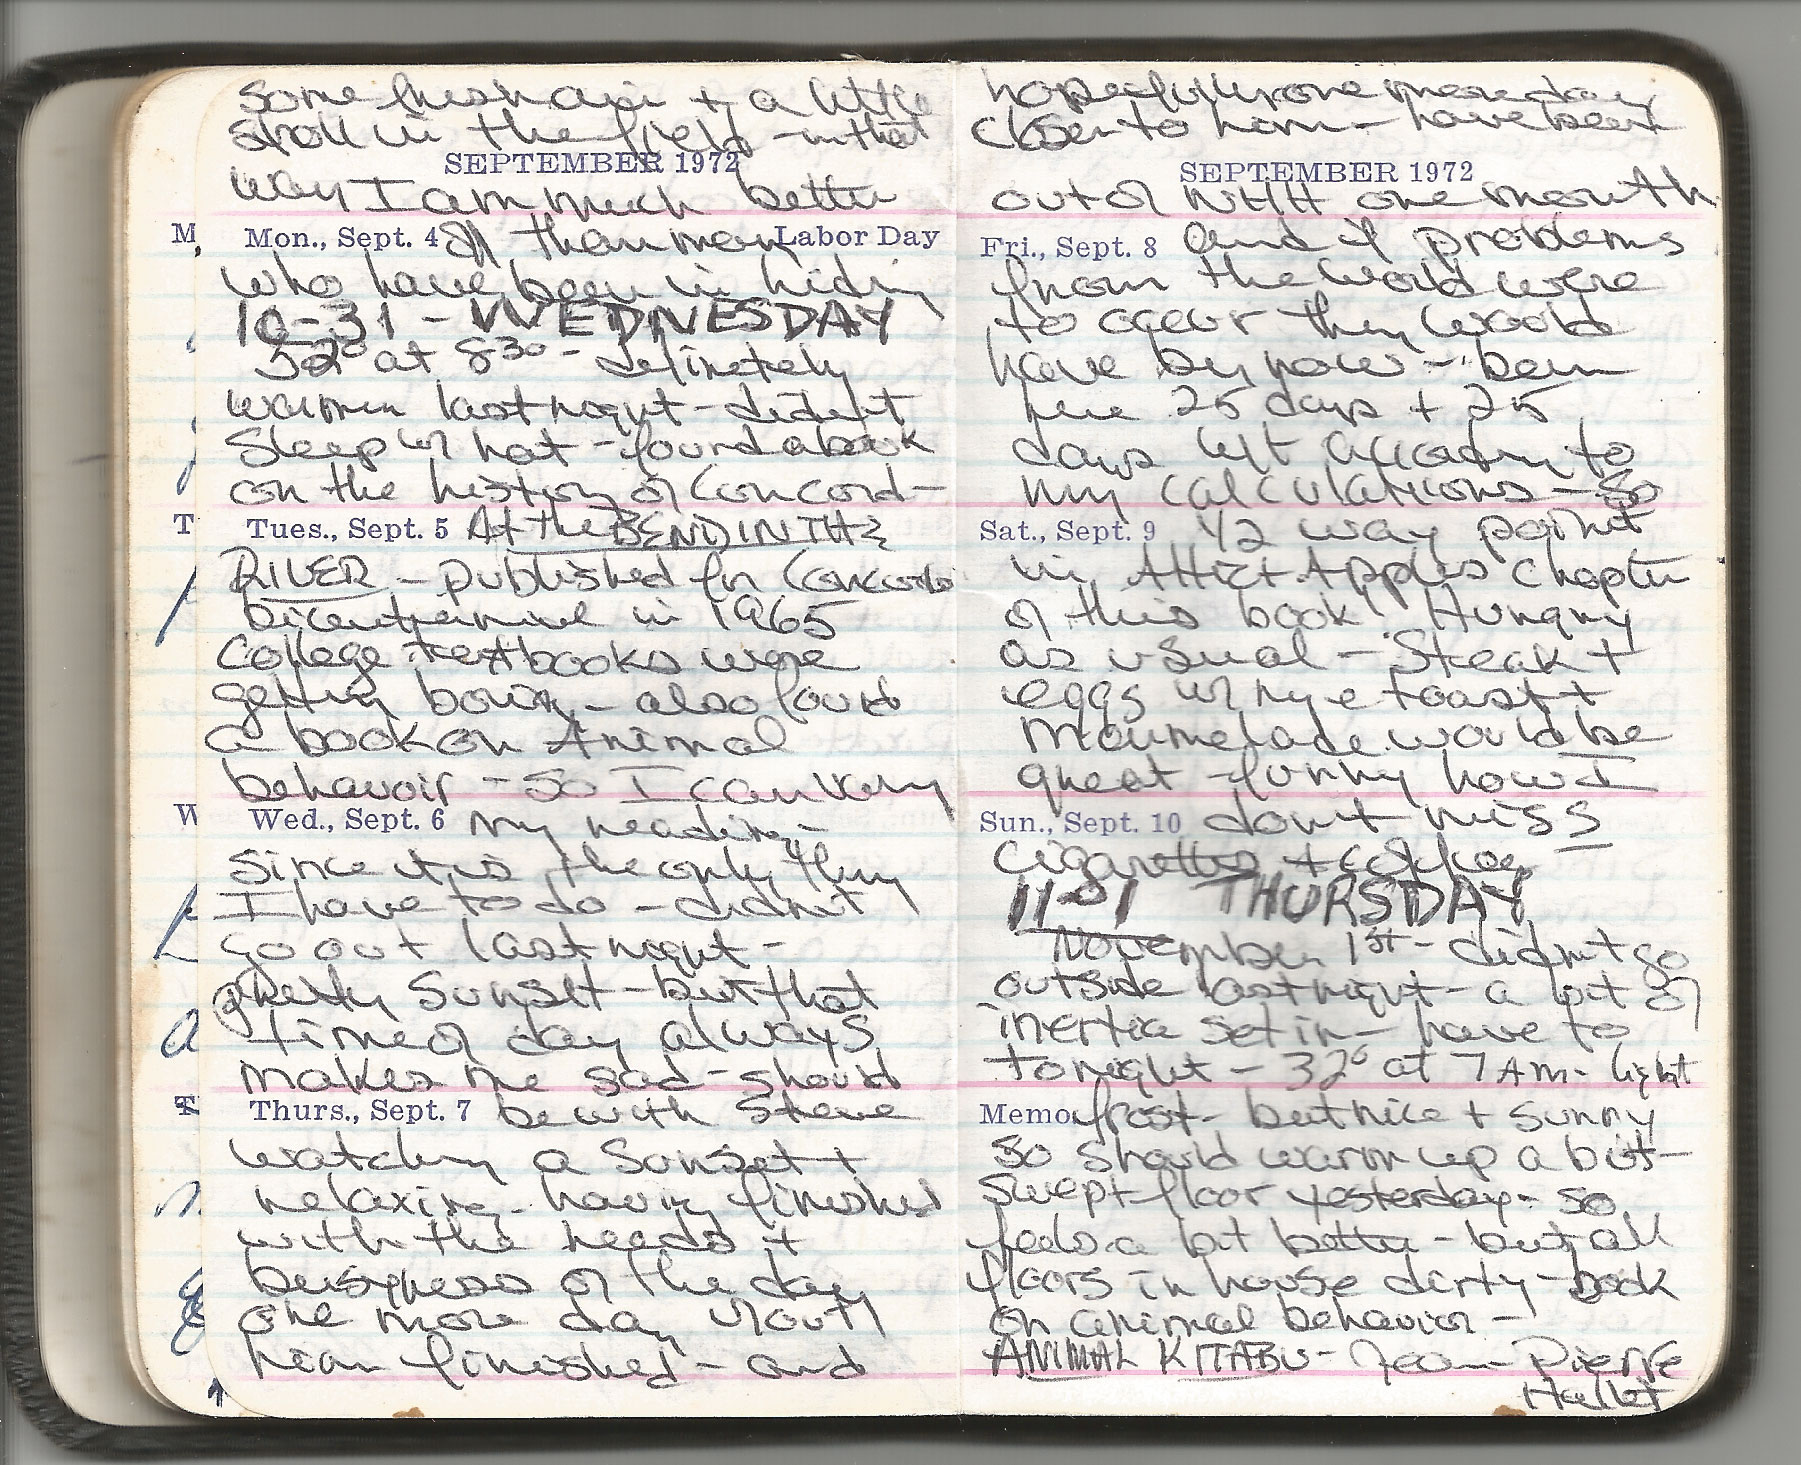 some fresh air + a little
stroll in the field - in that
SEPTEMBER 1972
way I am much better
M
Mon., Sept. 4 off than many Labor Day
who have been in hiding
10-31 - WEDNESDAY
32° at 8³⁰ - definetely
warmer last night - didn't
sleep w/ hat - found a book
on the history of Concord -
T
Tues., Sept. 5 At the BEND IN THE
RIVER - published for Concords
Bicentennial in 1965
College textbooks were
getting boring - also found
a book on Animal
behavoir - so I can vary
W
Wed., Sept. 6 my reading -
since it is the only thing
I have to do - didn't
go out last night -
pretty sunset - but that
time of day always
makes me sad - should
T
Thurs., Sept. 7 be with Steve
watching a sunset +
relaxing - having finished
with the needs +
busyness of the day
one more day w/out
him finished - and
hopefully one more day
closer to him - have been
SEPTEMBER 1972
out of NHH one month
Fri., Sept. 8 and if problems
from the world were
to occur they would
have by now - been
here 25 days + 25
days left according to
my calculations - so
Sat., Sept. 9 1/2 way point
in Attic + Apples Chapter
of this book! Hungry
as usual - Steak +
eggs w/ rye toast +
marmelade would be
great - funny how I
Sun., Sept. 10 don't miss
cigarettes + coffee
11-01 THURSDAY
November 1st - didn't go
outside last night - a bit of
inertia set in - have to
tonight - 32° at 7 AM - light
Memo frost - but nice + sunny
so should warm up a bit -
swept floor yesterday - so
feels a bit better - but all
floors in house dirty - book
on animal behavior -
ANIMAL KITABU - Jean-Pierre
Hallet